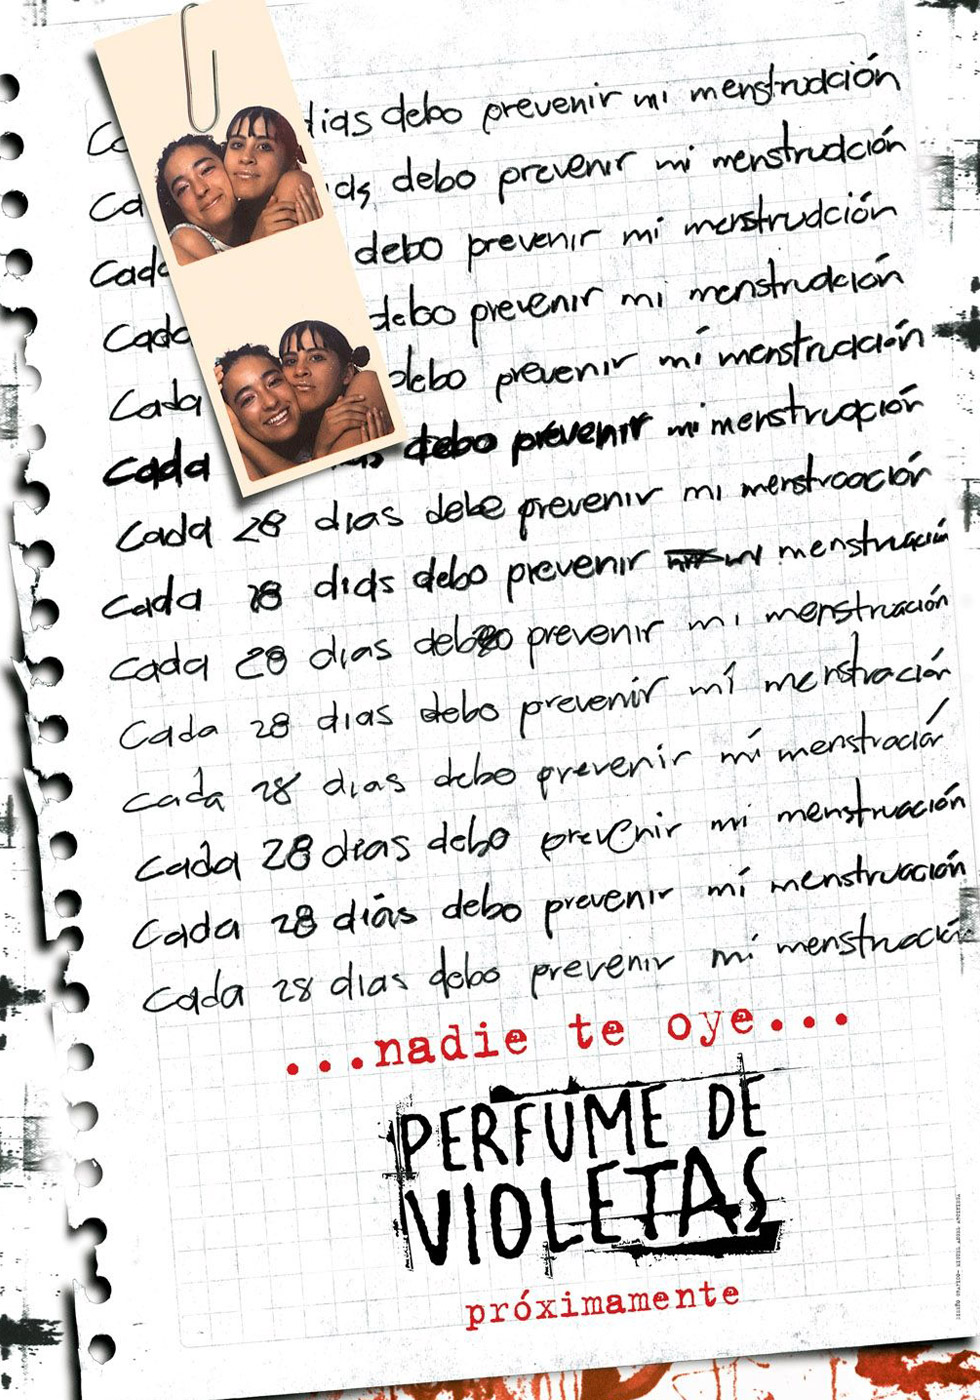 días debo prevenir mi menstruación
debo prevenir mi menstruación
Cada debo prevenir mi menstruación
Cada debo prevenir mi menstruación
Cada debo prevenir mi menstruación
Cada debo prevenir mi menstruación
Cada 28 días debe prevenir mi menstroación
Cada 28 días debo prevenir menstruación
Cada 28 días debo prevenir mi menstruación
Cada 28 días debo prevenir mí menstración
Cada 28 días debo prevenir mi menstración
Cada 28 días debo prevenir mi menstruación
Cada 28 días debo prevenir mí menstruación
Cada 28 días debo prevenir mi menstruació
...nadie te oye...
PERFUME DE
VIOLETAS
próximamente